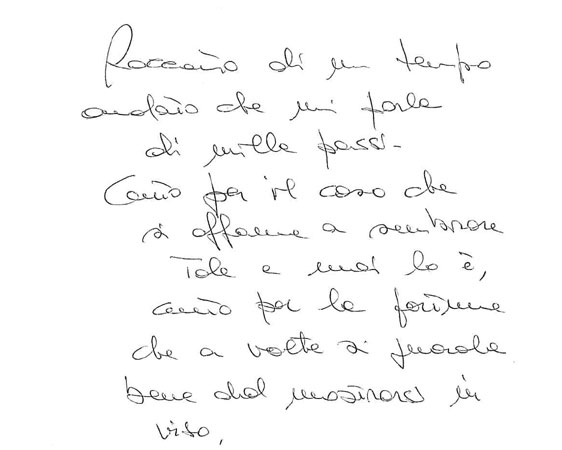 Racconto di un tempo
andato che mi parla
di mille passi.
Canto per il caso che
si affanna a sembrare
Tale e mai lo è,
canto per la fortuna
che a volte si guarda
bene dal mostrarsi in
viso.